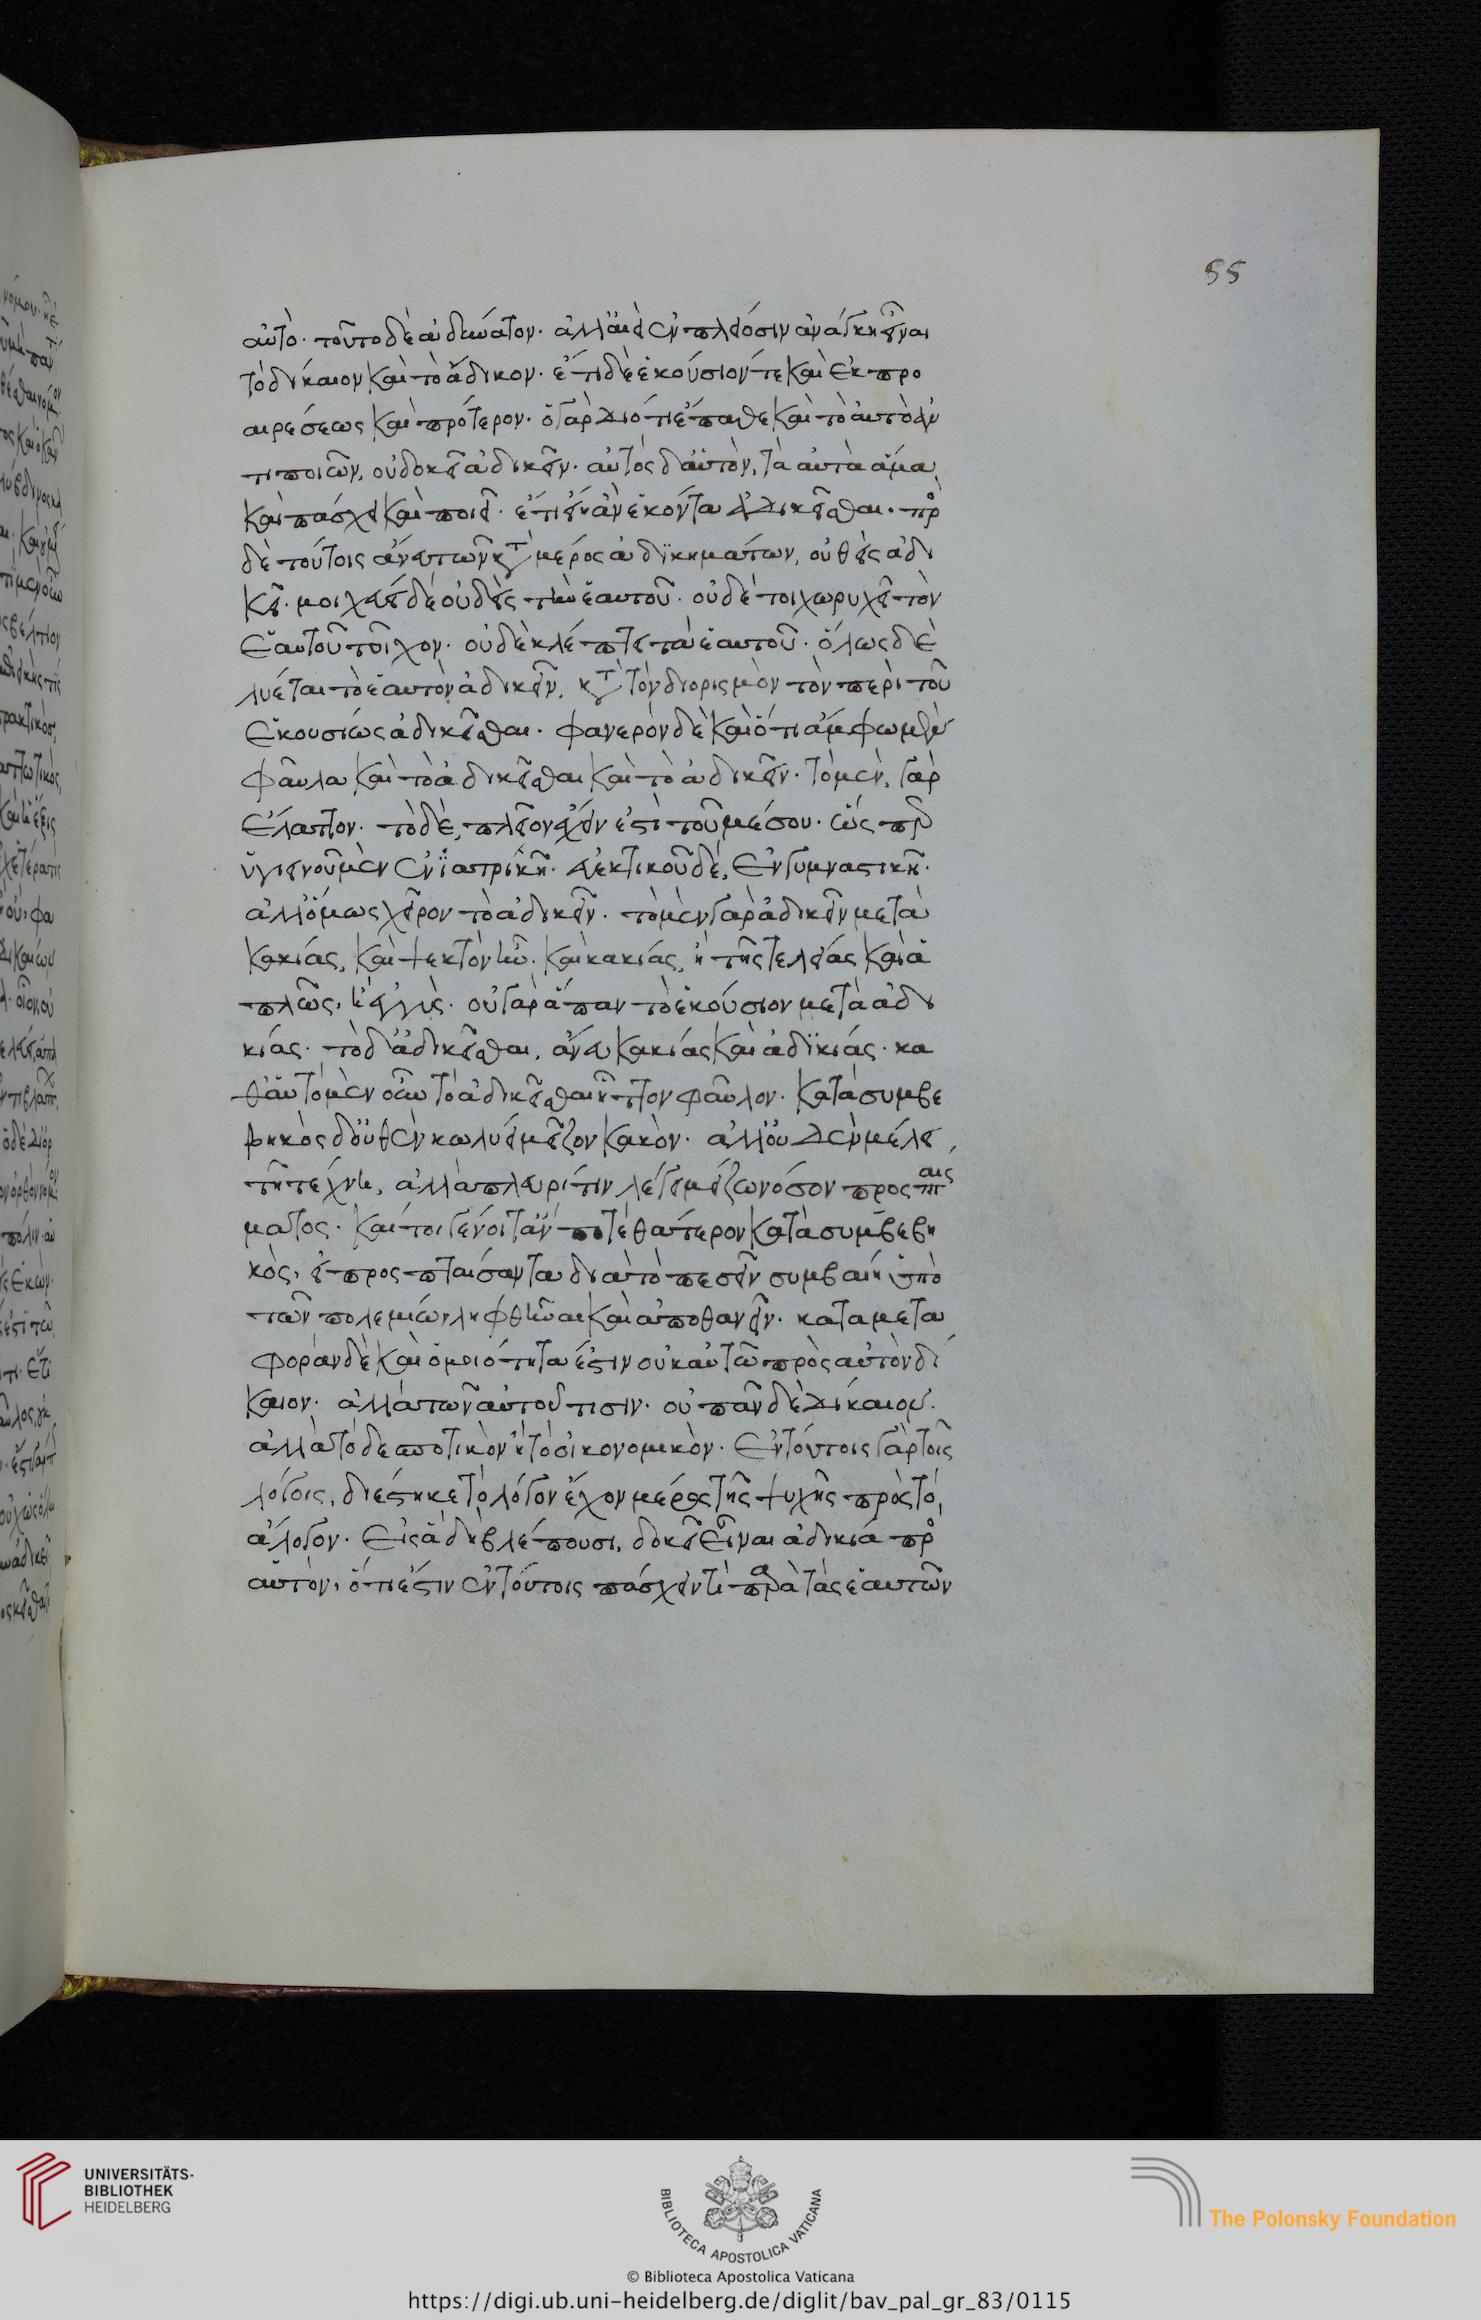 55
αὐτό· τοῦτο δὲ ἀδύνατον· ἀλλ' ἀεὶ ἐν πλείοσιν ἀνάγκη εἶναι
τὸ δίκαιον καὶ τὸ ἄδικον· ἔτι δὲ ἑκούσιόν τε καὶ ἐκ προ
αιρέσεως καὶ πρότερον· ὁ γὰρ διότι ἔπαθε καὶ τὸ αὐτὸ ἀν
τιποιῶν, οὐ δοκεῖ ἀδικεῖν· αὐτὸς δ' αὑτὸν, τὰ αὐτὰ ἅμα
καὶ πάσχει καὶ ποιεῖ· ἔτι εἴη ἂν ἑκόντα ἀδικεῖσθαι· πρὸ
δὲ τούτοις ἄνευ τῶν κατὰ μέρος ἀδικημάτων, οὐθεὶς ἀδι
κεῖ· μοιχεύει δὲ οὐδεὶς τὴν ἑαυτοῦ· οὐδὲ τοιχωρυχεῖ τὸν
ἑαυτοῦ τοῖχον· οὐδὲ κλέπτει τὰ ἑαυτοῦ· ὅλως δὲ
λύεται τὸ ἑαυτὸν ἀδικεῖν, κατὰ τὸν διορισμὸν τὸν περὶ τοῦ
ἑκουσίως ἀδικεῖσθαι· φανερὸν δὲ καὶ ὅτι ἄμφω μὲν
φαῦλα καὶ τὸ ἀδικεῖσθαι καὶ τὸ ἀδικεῖν· τὸ μὲν, γὰρ
ἔλαττον· τὸ δὲ, πλεῖον ἔχειν ἐστὶ τοῦ μέσου· ὥσπερ
ὑγιεινοῦ μὲν ἐν ἰατρικῇ· εὐεκτικοῦ δὲ, ἐν γυμναστικῇ·
ἀλλ' ὅμως χεῖρον τὸ ἀδικεῖν· τὸ μὲν γὰρ ἀδικεῖν μετὰ
κακίας, καὶ ψεκτὸν ἦν· καὶ κακίας, ἢ τῆς τελείας καὶ ἁ
πλῶς, ἢ ἐγγύς· οὐ γὰρ ἅπαν τὸ ἑκούσιον μετὰ ἀδι
κίας· τὸ δ' ἀδικεῖσθαι, ἄνευ κακίας καὶ ἀδικίας· κα
θ' αὑτὸ μὲν οὖν τὸ ἀδικεῖσθαι ἧττον φαῦλον· κατὰ συμβε
βηκὸς δ' οὐθὲν κωλύει μεῖζον κακόν· ἀλλ' οὐδὲν μέλει
τῇ τέχνῃ, ἀλλὰ πλευρῖτιν λέγει μείζω νόσον προσπταίς
ματος· καίτοι γένοιτ' ἄν ποτε θάτερον κατὰ συμβεβη
κὸς, εἰ προσπταίσαντα διὰ τὸ πεσεῖν συμβαίη ὑπὸ
τῶν πολεμίων ληφθῆναι καὶ ἀποθανεῖν· κατὰ μετα
φορὰν δὲ καὶ ὁμοιότητά ἐστιν οὐκ αὐτῷ πρὸς αὑτὸν δί
καιον· ἀλλὰ τῶν αὐτοῦ τισιν· οὐ πᾶν δὲ δίκαιον·
ἀλλὰ τὸ δεσποτικὸν ἢ τὸ οἰκονομικὸν· ἐν τούτοις γὰρ τοῖς
λόγοις, διέστηκε τὸ λόγον ἔχον μέρος τῆς ψυχῆς πρὸς τὸ
ἄλογον· εἰς ἃ δὴ βλέπουσι, δοκεῖ εἶναι ἀδικία πρὸ
αὑτὸν, ὅτι ἔστιν ἐν τούτοις πάσχειν τι παρὰ τὰς ἑαυτῶν
UNIVERSITÄTS-
BIBLIOTHEK
HEIDELBERG
BIBLIOTECA APOSTOLICA VATICANA
The Polonsky Foundation
© Biblioteca Apostolica Vaticana
https://digi.ub.uni-heidelberg.de/diglit/bav_pal_gr_83/0115